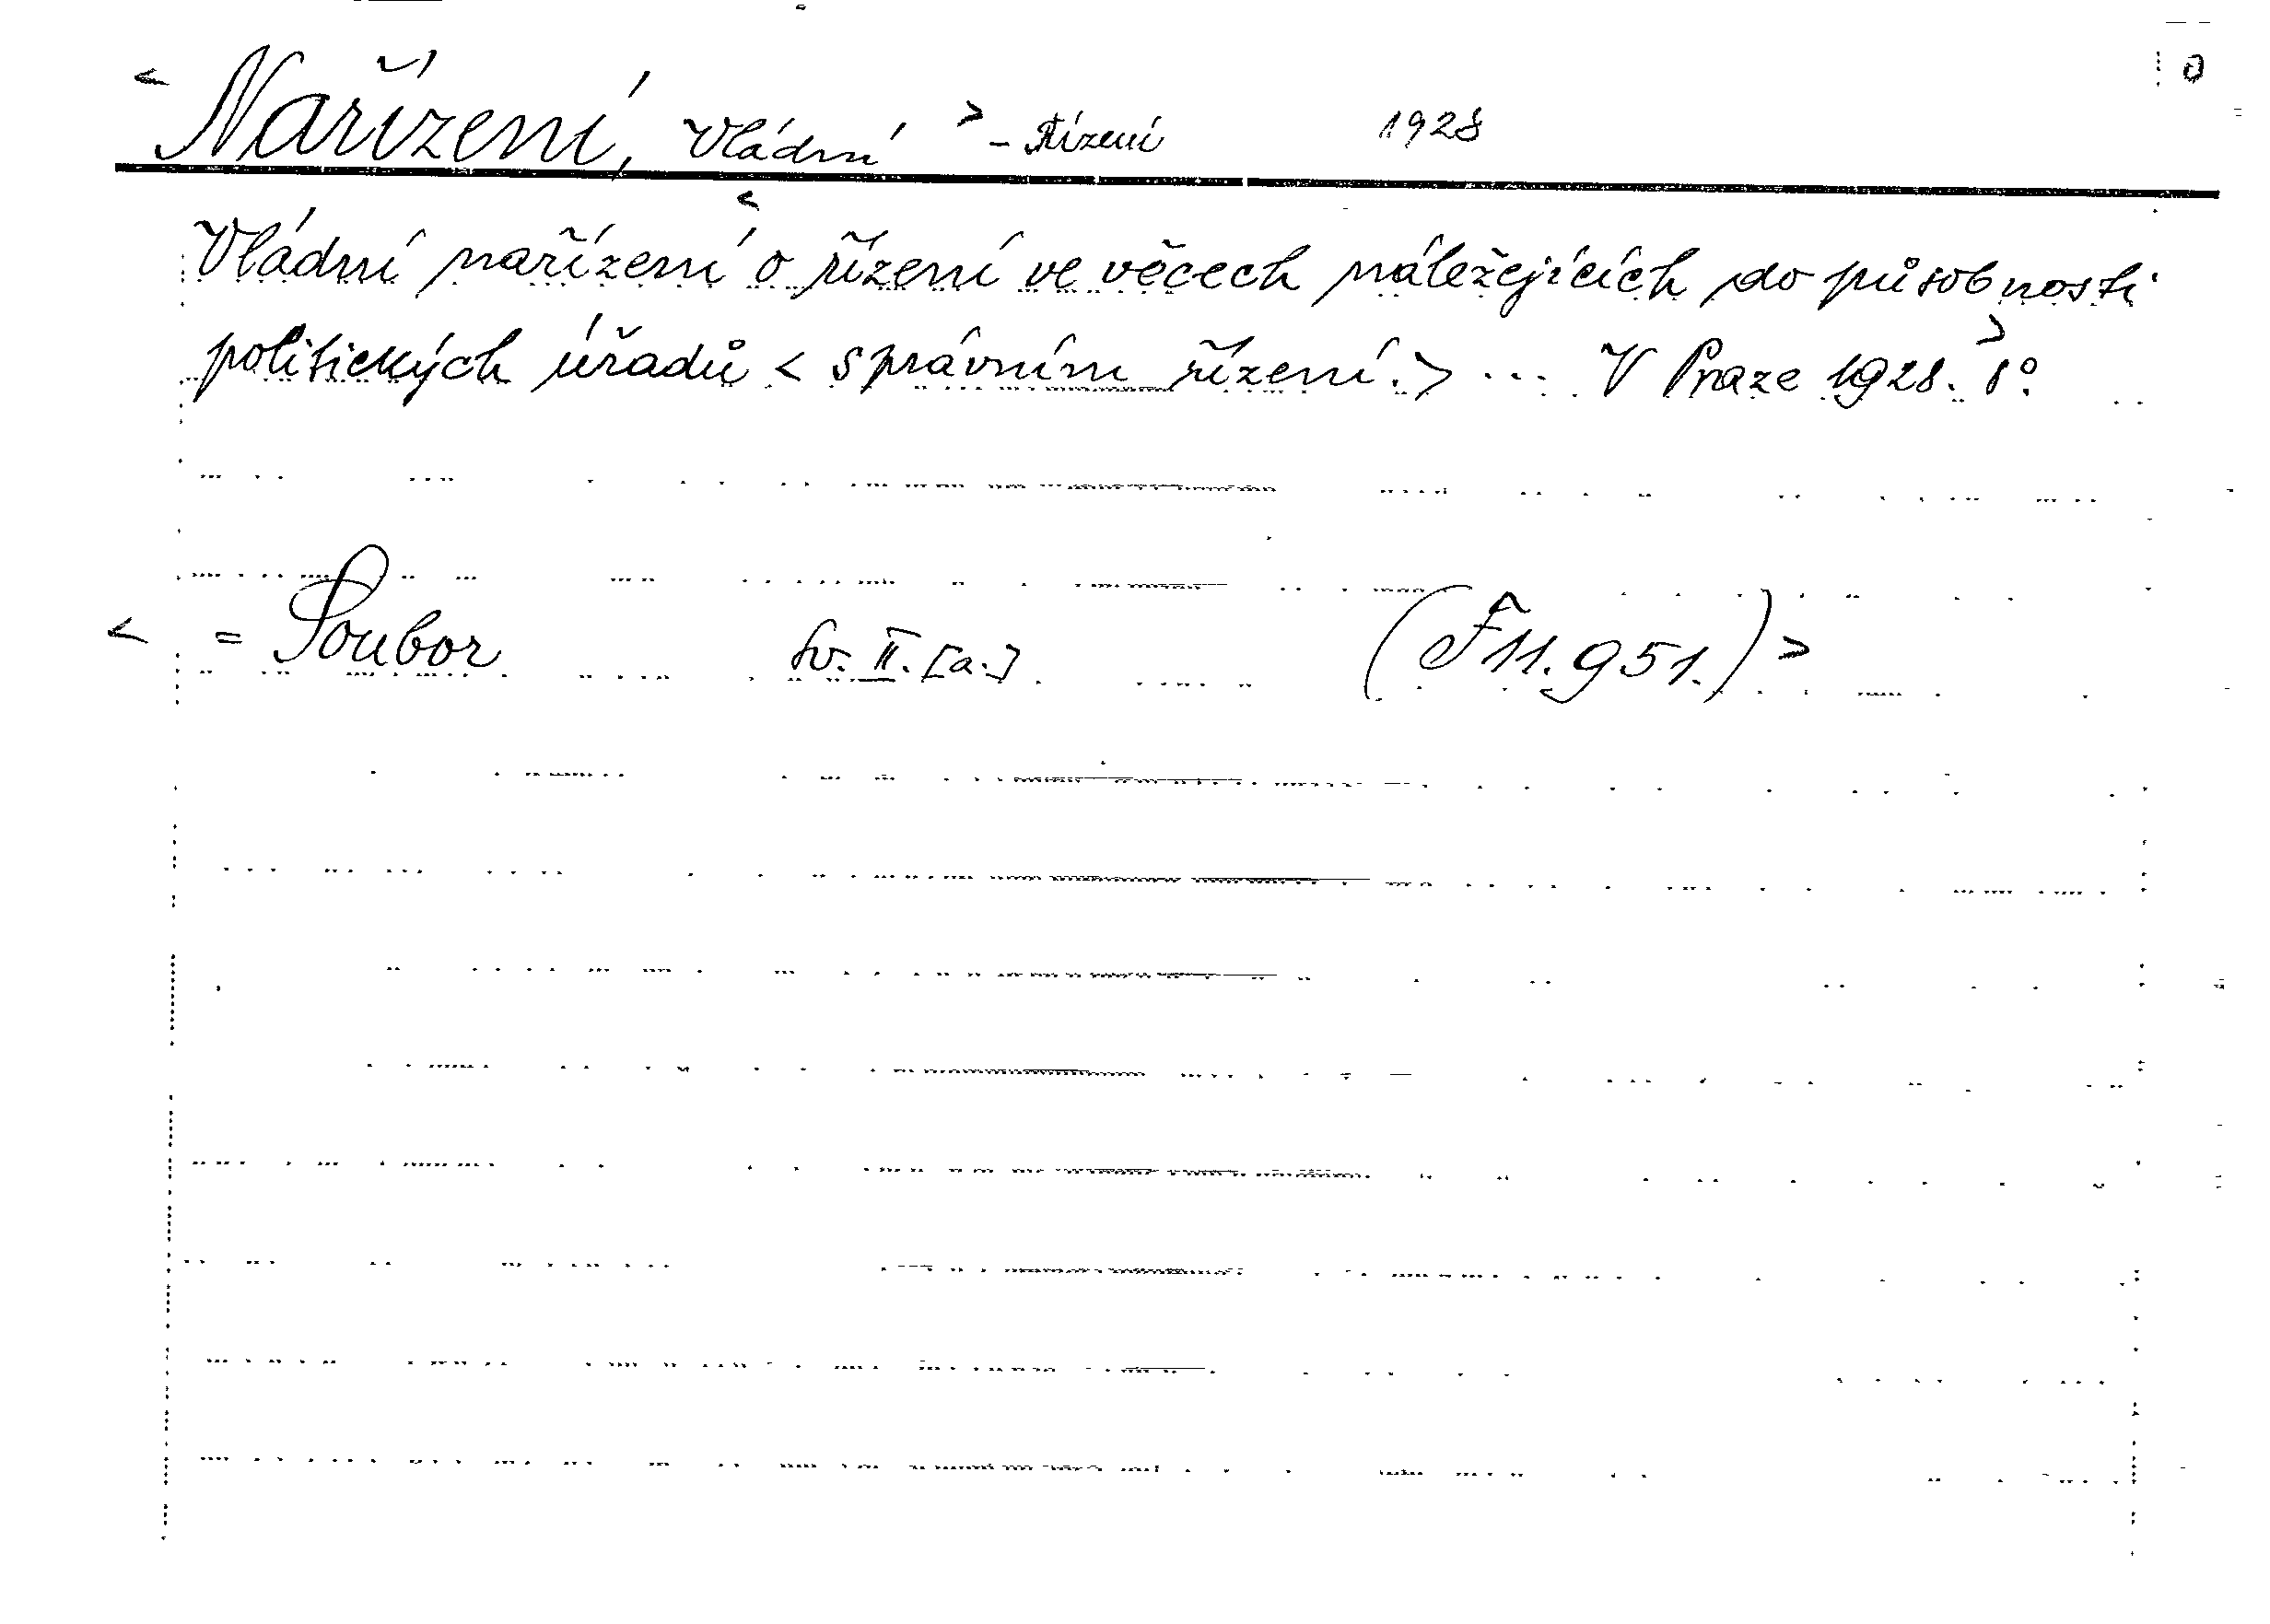 < Nařízení, Vládní > - Řízení 1928
Vládní nařízení < o řízení ve věcech náležejících do působnosti
politických úřadů < správním řízení. > ... V Praze 1928. > 8°.
< = Soubor Sv. II. [a.] (F 11.951.) >